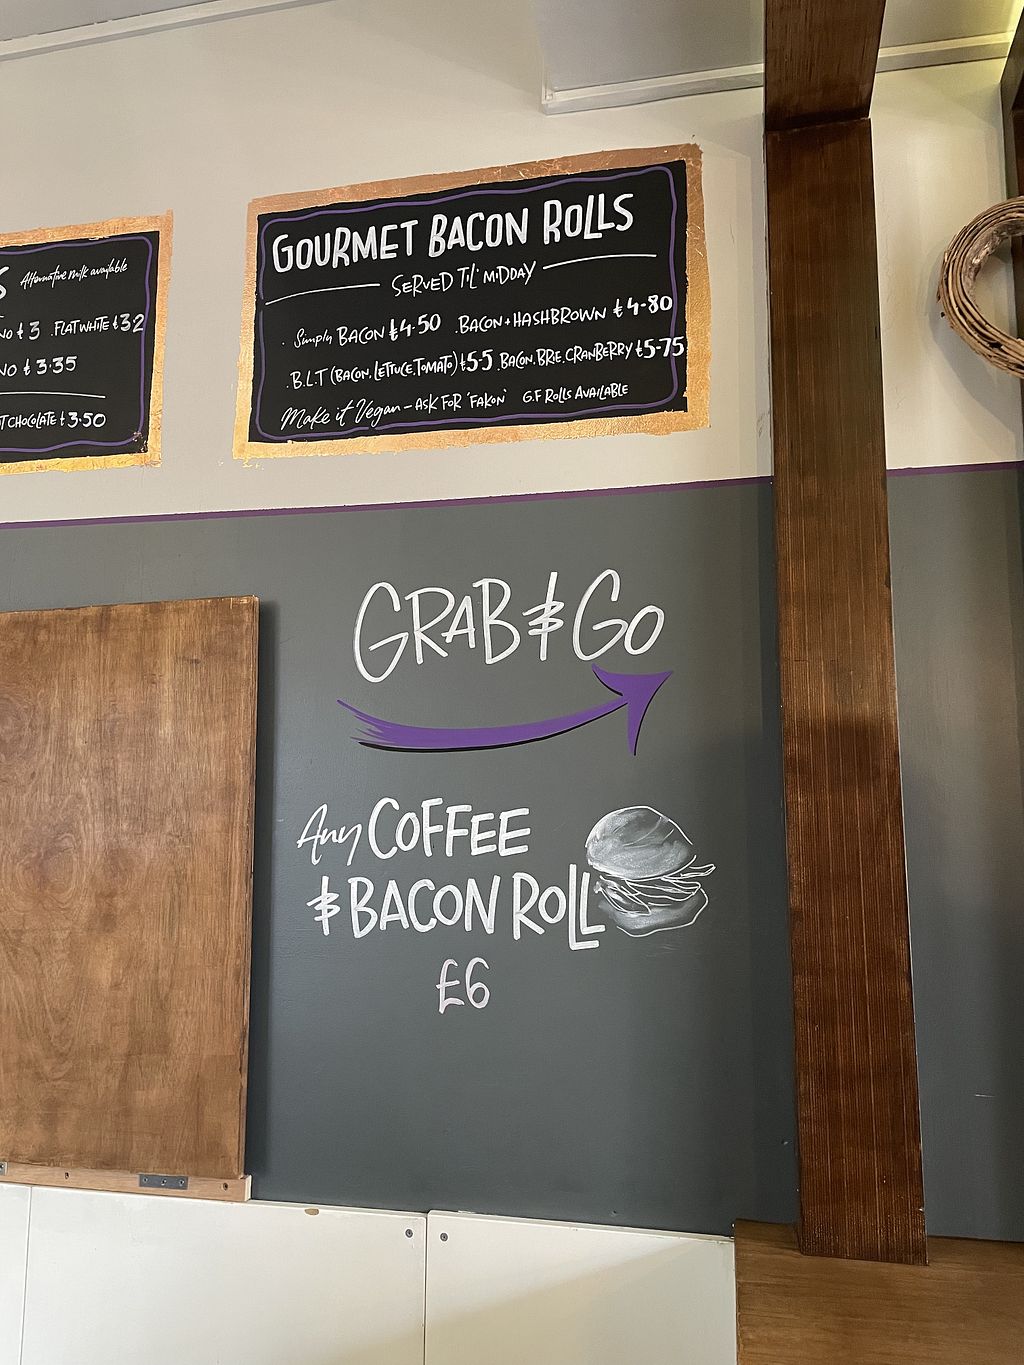 Alternative milk available
£3 .FLAT WHITE £3.2
£3.35
CHOCOLATE £3.50
GOURMET BACON ROLLS
SERVED TIL' MIDDAY
. Simply BACON £4.50 .BACON+HASHBROWN £4.80
.B.L.T (BACON.LETTUCE.TOMATO) £5.5 .BACON.BRIE.CRANBERRY £5.75
Make it Vegan - ASK FOR 'FAKON' G.F ROLLS AVAILABLE
GRAB & GO
Any COFFEE
& BACON ROLL
£6